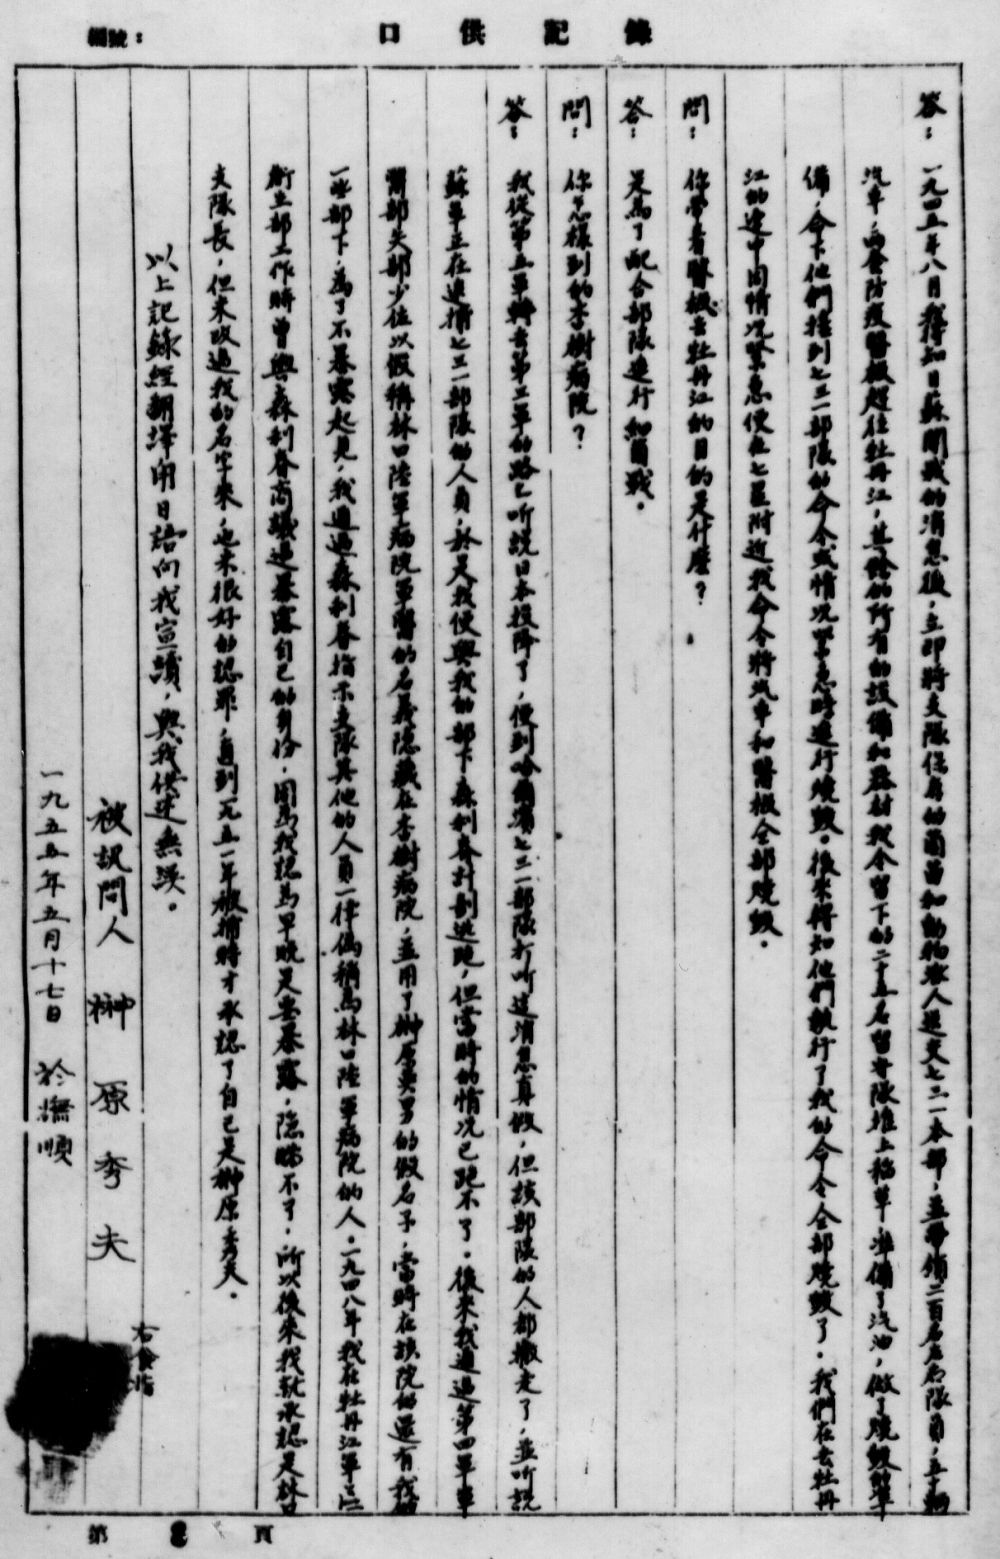 口供記錄
編號：
答：一九四五年八月獲知日蘇開戰的消息後，立即將支隊保有的菌苗和動物派人送交七三一本部，並帶領二百名左右隊員，五十輛
汽車，攜套防疫醫極趕往牡丹江，其餘的所有的設備和器材我令留下的二十五名留守隊堆上稻草，準備了汽油，做了燒毀的準
備，命令他們接到七三一部隊的命令或情況緊急時進行燒毀。後來得知他們執行了我的命令全部燒毀了。我們在去牡丹
江的途中因情況緊急便在七星附近我命令將汽車和醫極全部燒毀。
問：你帶著醫極去牡丹江的目的是什麼？
答：是為了配合部隊進行細菌戰。
問：你怎樣到的李樹病院？
答：我從第五軍轉去第三軍的路上听說日本投降了，便到哈爾濱七三一部隊打听這消息真假，但該部隊的人都撤走了，並听說
蘇軍正在追捕七三一部隊的人員，於是我便與我的部下森利春計劃逃跑，但當時的情況已跑不了。後來我通過第四軍軍
醫部矢部少佐以假稱林口陸軍病院軍醫的名義隱藏在李樹病院，並用了榊原英男的假名字，當時在該院的還有我的
一些部下，為了不暴露起見，我通過森利春指示支隊其他的人員一律偽稱為林口陸軍病院的人。一九四八年我在牡丹江軍區
衛生部工作時曾與森利春商議過暴露自己的身份，因為我認為早晚是要暴露，隱瞞不了，所以後來我就承認是林口
支隊長，但未改過我的名字來，也未很好的認罪，直到一九五一年被捕時才承認了自己是榊原秀夫。
以上記錄經翻譯用日語向我宣讀，與我供述無誤。
被訊問人 榊原秀夫
右食指
一九五五年五月十七日 於撫順
第 頁